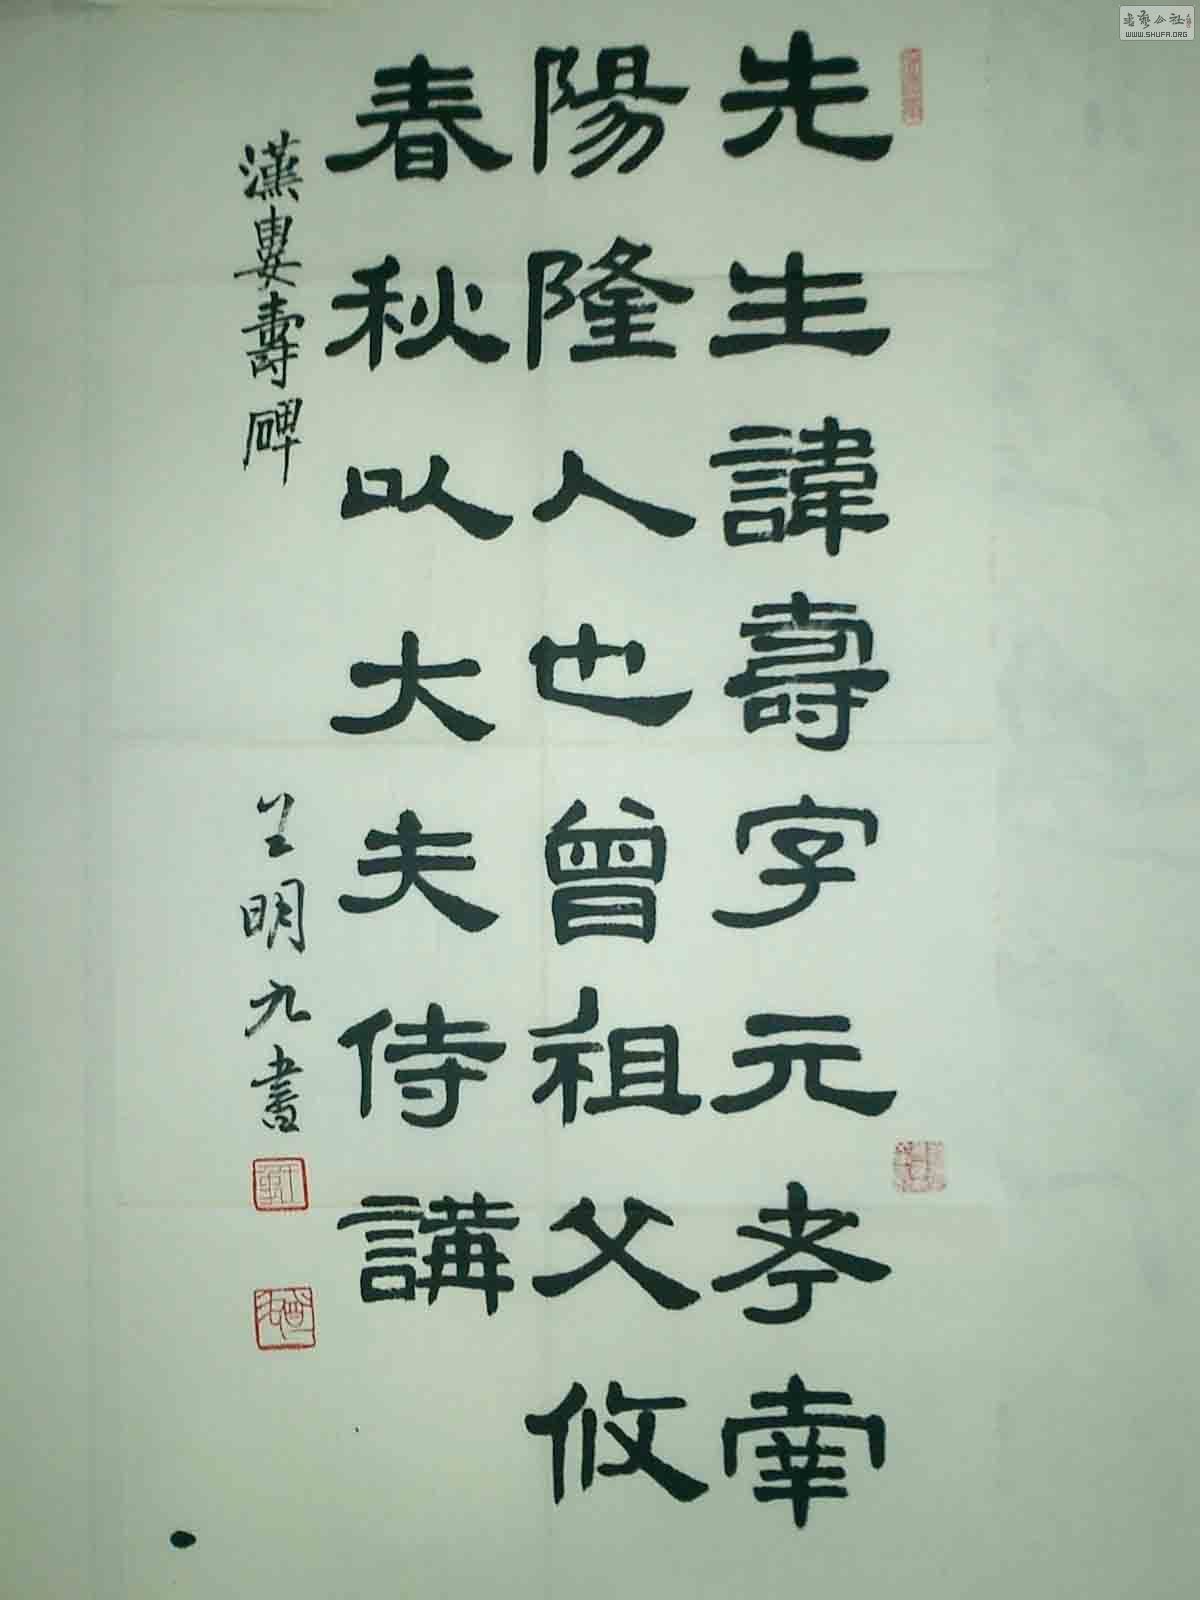 先生諱壽字元考南
陽隆人也曾祖父攸
春秋以大夫侍講
漢婁壽碑 王明九書
书艺公社
WWW.SHUFA.ORG